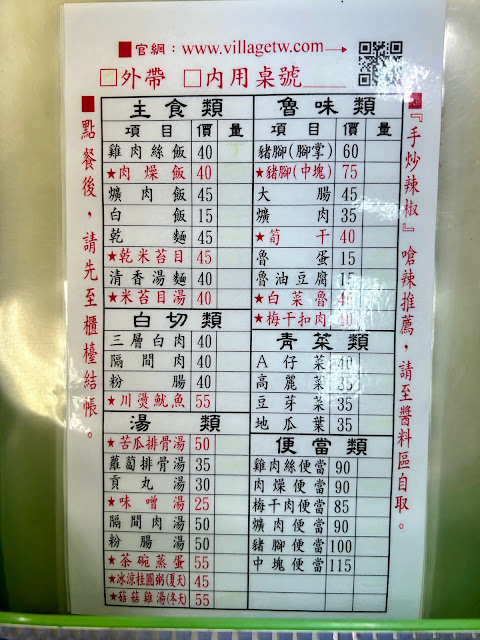 官網：www.villagetw.com→
□外帶 □內用桌號
點餐後，請先至櫃檯結帳。
主食類
項目 價 量
雞肉絲飯 40
★肉燥飯 40
爌肉飯 45
白飯 15
乾麵 45
★乾米苔目 45
清香湯麵 40
★米苔目湯 40
白切類
三層白肉 40
隔間肉 40
粉腸 40
★川燙魷魚 55
湯類
★苦瓜排骨湯 50
蘿蔔排骨湯 35
貢丸湯 30
★味噌湯 25
隔間肉湯 50
粉腸湯 50
★茶碗蒸蛋 55
★冰涼桂圓粥(夏天) 45
★菇菇雞湯(冬天) 55
魯味類
項目 價 量
豬腳(腳掌) 60
★豬腳(中塊) 75
大腸 45
爌肉 35
★筍干 40
魯蛋 15
魯油豆腐 15
★白菜魯 40
★梅干扣肉 40
青菜類
A仔菜 40
高麗菜 35
豆芽菜 35
地瓜葉 35
便當類
雞肉絲便當 90
肉燥便當 90
梅干肉便當 85
爌肉便當 90
豬腳便當 100
中塊便當 115
『手炒辣椒』嗆辣推薦，請至醬料區自取。